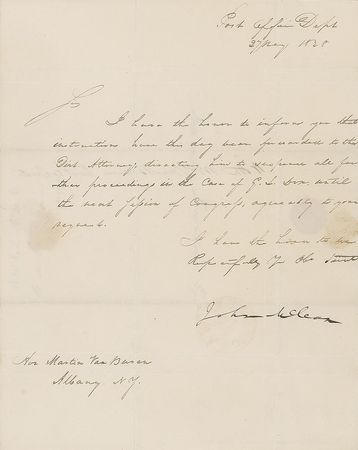 Post Office Dept
27 May 1828
Sir
I have the honor to inform you that
instructions have this day been forwarded to the
Dist. Attorney, directing him to suspend all fur
ther proceedings in the Case of G. L. until
the next Session of Congress, agreeably to your
request.
I have the honor to be
Respectfully Yr Ob. Servt
John McLean
Hon Martin Van Buren
Albany N.Y.